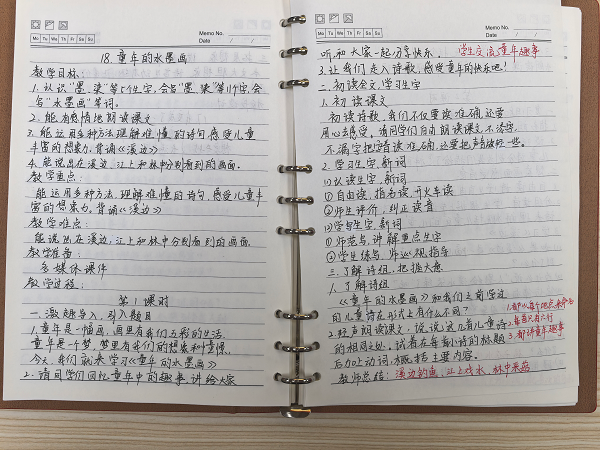 Memo No.
Mo Tu We Th Fr Sa Su
Date / /
18.童年的水墨画
教学目标:
1.认识“墨、染”等5个生字,会写“墨、染”等11个字,会
写“水墨画”等词。
2.能有感情地朗读课文
3.能运用多种方法理解难懂的诗句,感受儿童
丰富的想象力,背诵《溪边》
4.能说出在溪边、江上和林中分别看到的画面.
教学重点:
能运用多种方法,理解难懂的诗句,感受儿童丰
富的想象力。背诵《溪边》
教学难点:
能说出在溪边,江上和林中分别看到的画面
教学准备:
多媒体课件
教学过程:
第1课时
一、激趣导入,引入题目
1.童年是一幅画,画里有我们五彩的生活.
童年是一个梦,梦里有我们的想象和憧憬.
今天,我们就来学习《童年的水墨画》
2.请同学们回忆童年中的趣事,讲给大家
Memo No.
Mo Tu We Th Fr Sa Su
Date / /
听,和大家一起分享快乐. 学生交流童年趣事
3.让我们走入诗歌,感受童年的快乐吧!
二、初读全文,学习生字
1.初读课文
初读诗歌,我们不仅要读准确,还要
用心去感受。请同学们自由朗读课文,不添字,
不漏字把字音读准确,还要把声音放轻一些。
2.学习生字,新词
(1)认读生字,新词
①自由读,指名读,开火车读
②师生评价,纠正读音
(2)学写生字,新词
①师范写,讲解重点生字
②学生练写,师巡视,指导
三、了解诗组,把握大意
1.了解诗组
《童年的水墨画》和我们之前学过
的儿童诗在形式上有什么不同?
1.都以每个地点来命名
2.轻声朗读课文,说说这几首儿童诗
2.每首只有六行
的相同之处,试着在每首小诗的标题
3.都讲童年趣事
后加上动词,概括主要内容。
教师总结:溪边钓鱼,江上戏水,林中采菇